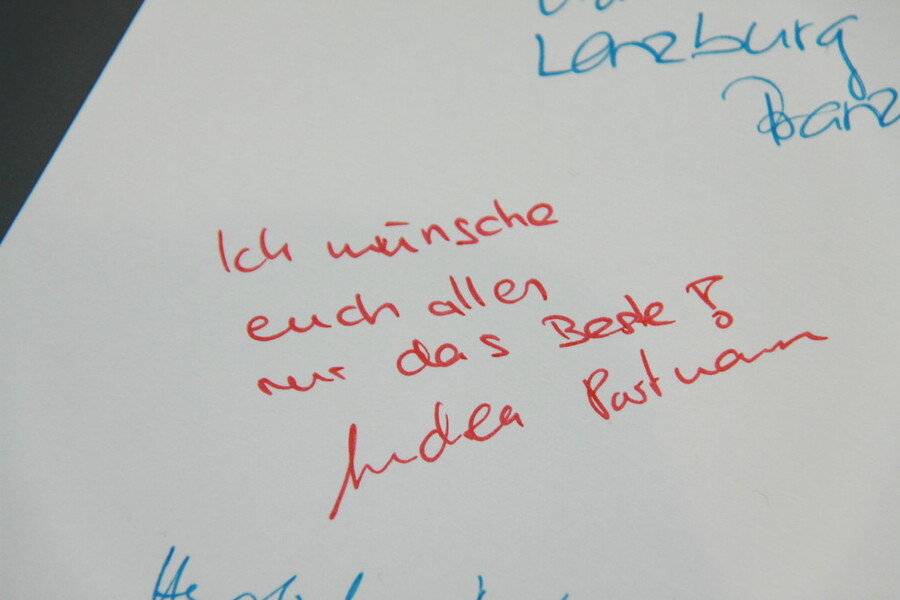 Lenzburg
Ich wünsche
euch allen
nur das Beste!
Andrea Portmann